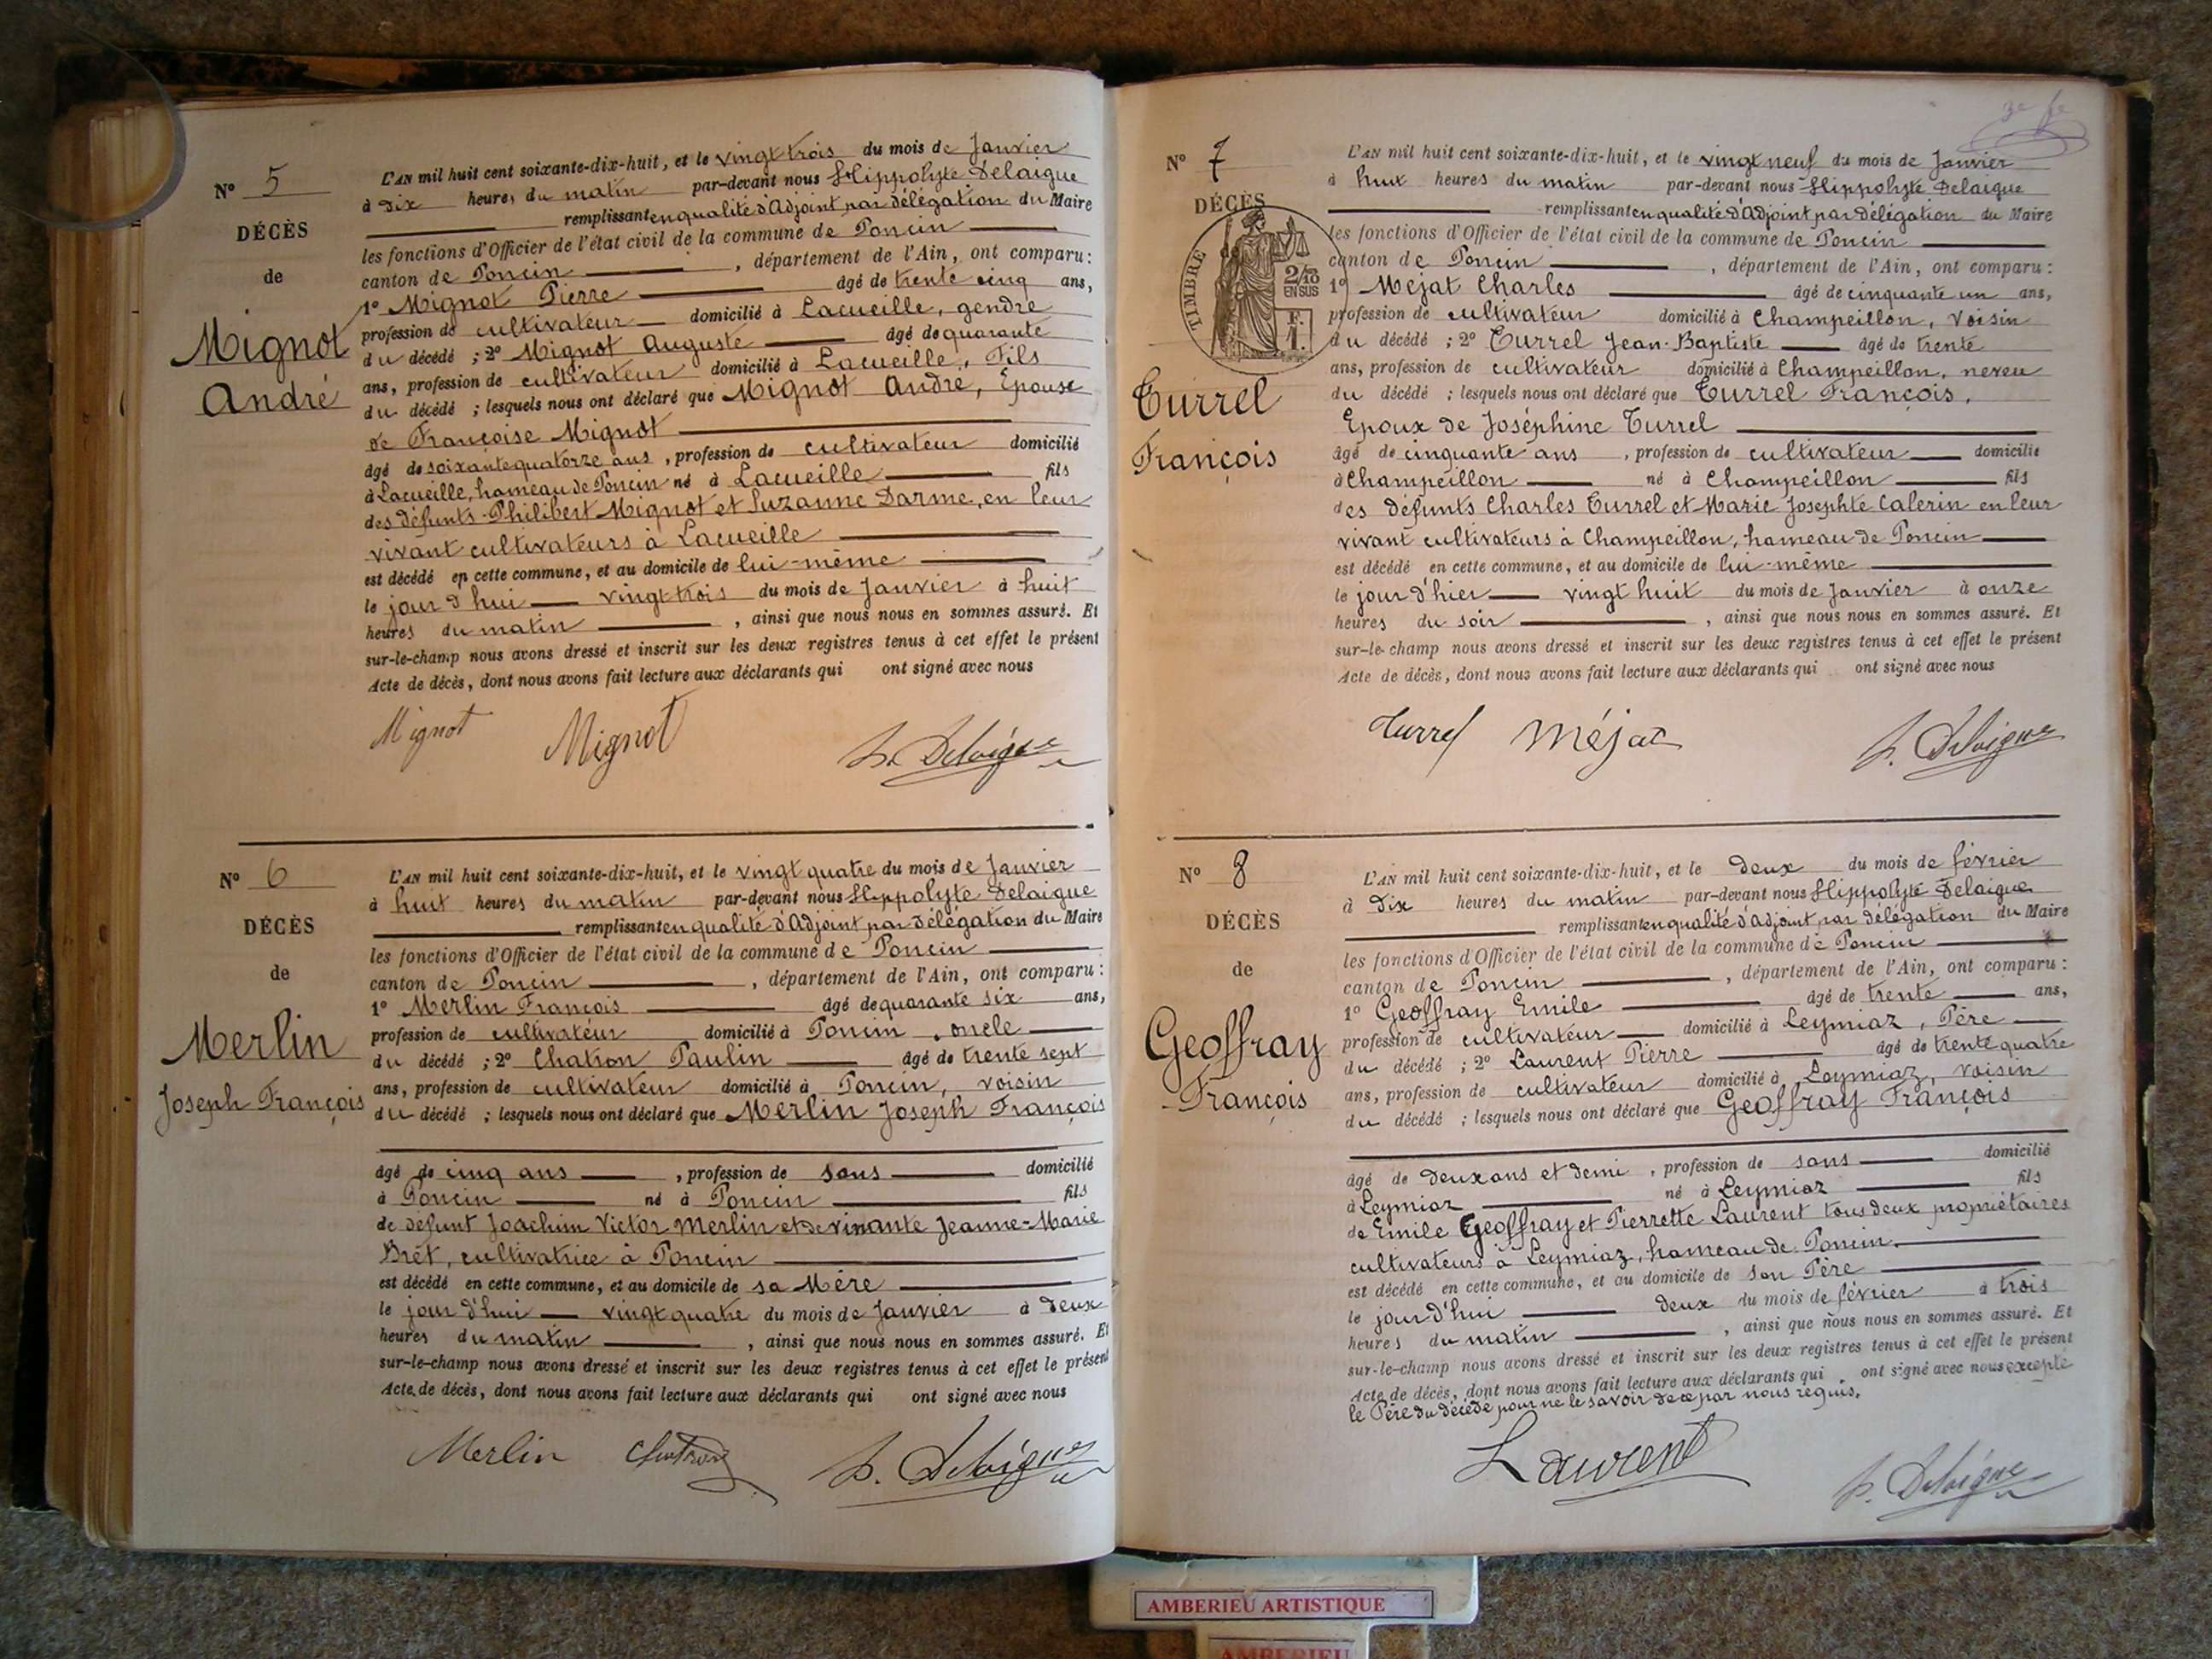 Nº 5
DÉCÈS
de
Mignot
André
L'AN mil huit cent soixante-dix-huit, et le vingt trois du mois de Janvier
à dix heures du matin par-devant nous Hippolyte Delaigue
remplissant en qualité d'Adjoint par délégation du Maire
les fonctions d'Officier de l'état civil de la commune de Poncin
canton de Poncin , département de l'Ain, ont comparu:
1º Mignot Pierre âgé de trente cinq ans,
profession de cultivateur domicilié à Lacueille, gendre
du décédé ; 2º Mignot Auguste âgé de quarante
ans, profession de cultivateur domicilié à Lacueille, Fils
du décédé ; lesquels nous ont déclaré que Mignot André, Epouse
de Françoise Mignot
âgé de soixante quatorze ans , profession de cultivateur domicilié
à Lacueille, hameau de Poncin né à Lacueille fils
des défunts Philibert Mignot et Suzanne Darme, en leur
vivant cultivateurs à Lacueille
est décédé en cette commune, et au domicile de lui-même
le jour d'hui vingt trois du mois de Janvier à huit
heures du matin , ainsi que nous nous en sommes assuré. Et
sur-le-champ nous avons dressé et inscrit sur les deux registres tenus à cet effet le présent
Acte de décès, dont nous avons fait lecture aux déclarants qui ont signé avec nous
Mignot Mignot H. Delaigue
Nº 6
DÉCÈS
de
Merlin
Joseph François
L'AN mil huit cent soixante-dix-huit, et le vingt quatre du mois de Janvier
à huit heures du matin par-devant nous Hippolyte Delaigue
remplissant en qualité d'Adjoint par délégation du Maire
les fonctions d'Officier de l'état civil de la commune de Poncin
canton de Poncin , département de l'Ain, ont comparu:
1º Merlin François âgé de quarante six ans,
profession de cultivateur domicilié à Poncin , oncle
du décédé ; 2º Chatron Paulin âgé de trente sept
ans, profession de cultivateur domicilié à Poncin, voisin
du décédé ; lesquels nous ont déclaré que Merlin Joseph François
âgé de cinq ans , profession de sans domicilié
à Poncin né à Poncin fils
de défunt Joachim Victor Merlin et de vivante Jeanne-Marie
Brêt, cultivatrice à Poncin
est décédé en cette commune, et au domicile de sa Mère
le jour d'hui vingt quatre du mois de Janvier à deux
heures du matin , ainsi que nous nous en sommes assuré. Et
sur-le-champ nous avons dressé et inscrit sur les deux registres tenus à cet effet le présent
Acte de décès, dont nous avons fait lecture aux déclarants qui ont signé avec nous
Merlin Chatron H. Delaigue
Nº 7
DÉCÈS
TIMBRE
2/10
EN SUS
F.
1.
Turrel
François
L'AN mil huit cent soixante-dix-huit, et le vingt neuf du mois de Janvier
à huit heures du matin par-devant nous Hippolyte Delaigue
remplissant en qualité d'Adjoint par délégation du Maire
les fonctions d'Officier de l'état civil de la commune de Poncin
canton de Poncin , département de l'Ain, ont comparu:
1º Méjat Charles âgé de cinquante un ans,
profession de cultivateur domicilié à Champeillon, voisin
du décédé ; 2º Turrel Jean-Baptiste âgé de trente
ans, profession de cultivateur domicilié à Champeillon, neveu
du décédé ; lesquels nous ont déclaré que Turrel François,
Epoux de Joséphine Turrel
âgé de cinquante ans , profession de cultivateur domicilié
à Champeillon né à Champeillon fils
des défunts Charles Turrel et Marie Josephte Calerin en leur
vivant cultivateurs à Champeillon, hameau de Poncin
est décédé en cette commune, et au domicile de lui-même
le jour d'hier vingt huit du mois de Janvier à onze
heures du soir , ainsi que nous nous en sommes assuré. Et
sur-le-champ nous avons dressé et inscrit sur les deux registres tenus à cet effet le présent
Acte de décès, dont nous avons fait lecture aux déclarants qui ont signé avec nous
Turrel Méjat H. Delaigue
Nº 8
DÉCÈS
de
Geoffray
François
L'AN mil huit cent soixante-dix-huit, et le deux du mois de février
à dix heures du matin par-devant nous Hippolyte Delaigue
remplissant en qualité d'Adjoint par délégation du Maire
les fonctions d'Officier de l'état civil de la commune de Poncin
canton de Poncin , département de l'Ain, ont comparu:
1º Geoffray Emile âgé de trente ans,
profession de cultivateur domicilié à Leymiaz, Père
du décédé ; 2º Laurent Pierre âgé de trente quatre
ans, profession de cultivateur domicilié à Leymiaz, voisin
du décédé ; lesquels nous ont déclaré que Geoffray François
âgé de deux ans et demi , profession de sans domicilié
à Leymiaz né à Leymiaz fils
de Emile Geoffray et Pierrette Laurent tous deux propriétaires
cultivateurs à Leymiaz, hameau de Poncin.
est décédé en cette commune, et au domicile de son Père
le jour d'hui deux du mois de février à trois
heures du matin , ainsi que nous nous en sommes assuré. Et
sur-le-champ nous avons dressé et inscrit sur les deux registres tenus à cet effet le présent
Acte de décès, dont nous avons fait lecture aux déclarants qui ont signé avec nous excepté
le Père du décédé pour ne le savoir de ce par nous requis.
Laurent H. Delaigue
AMBERIEU ARTISTIQUE
AMBERIEU